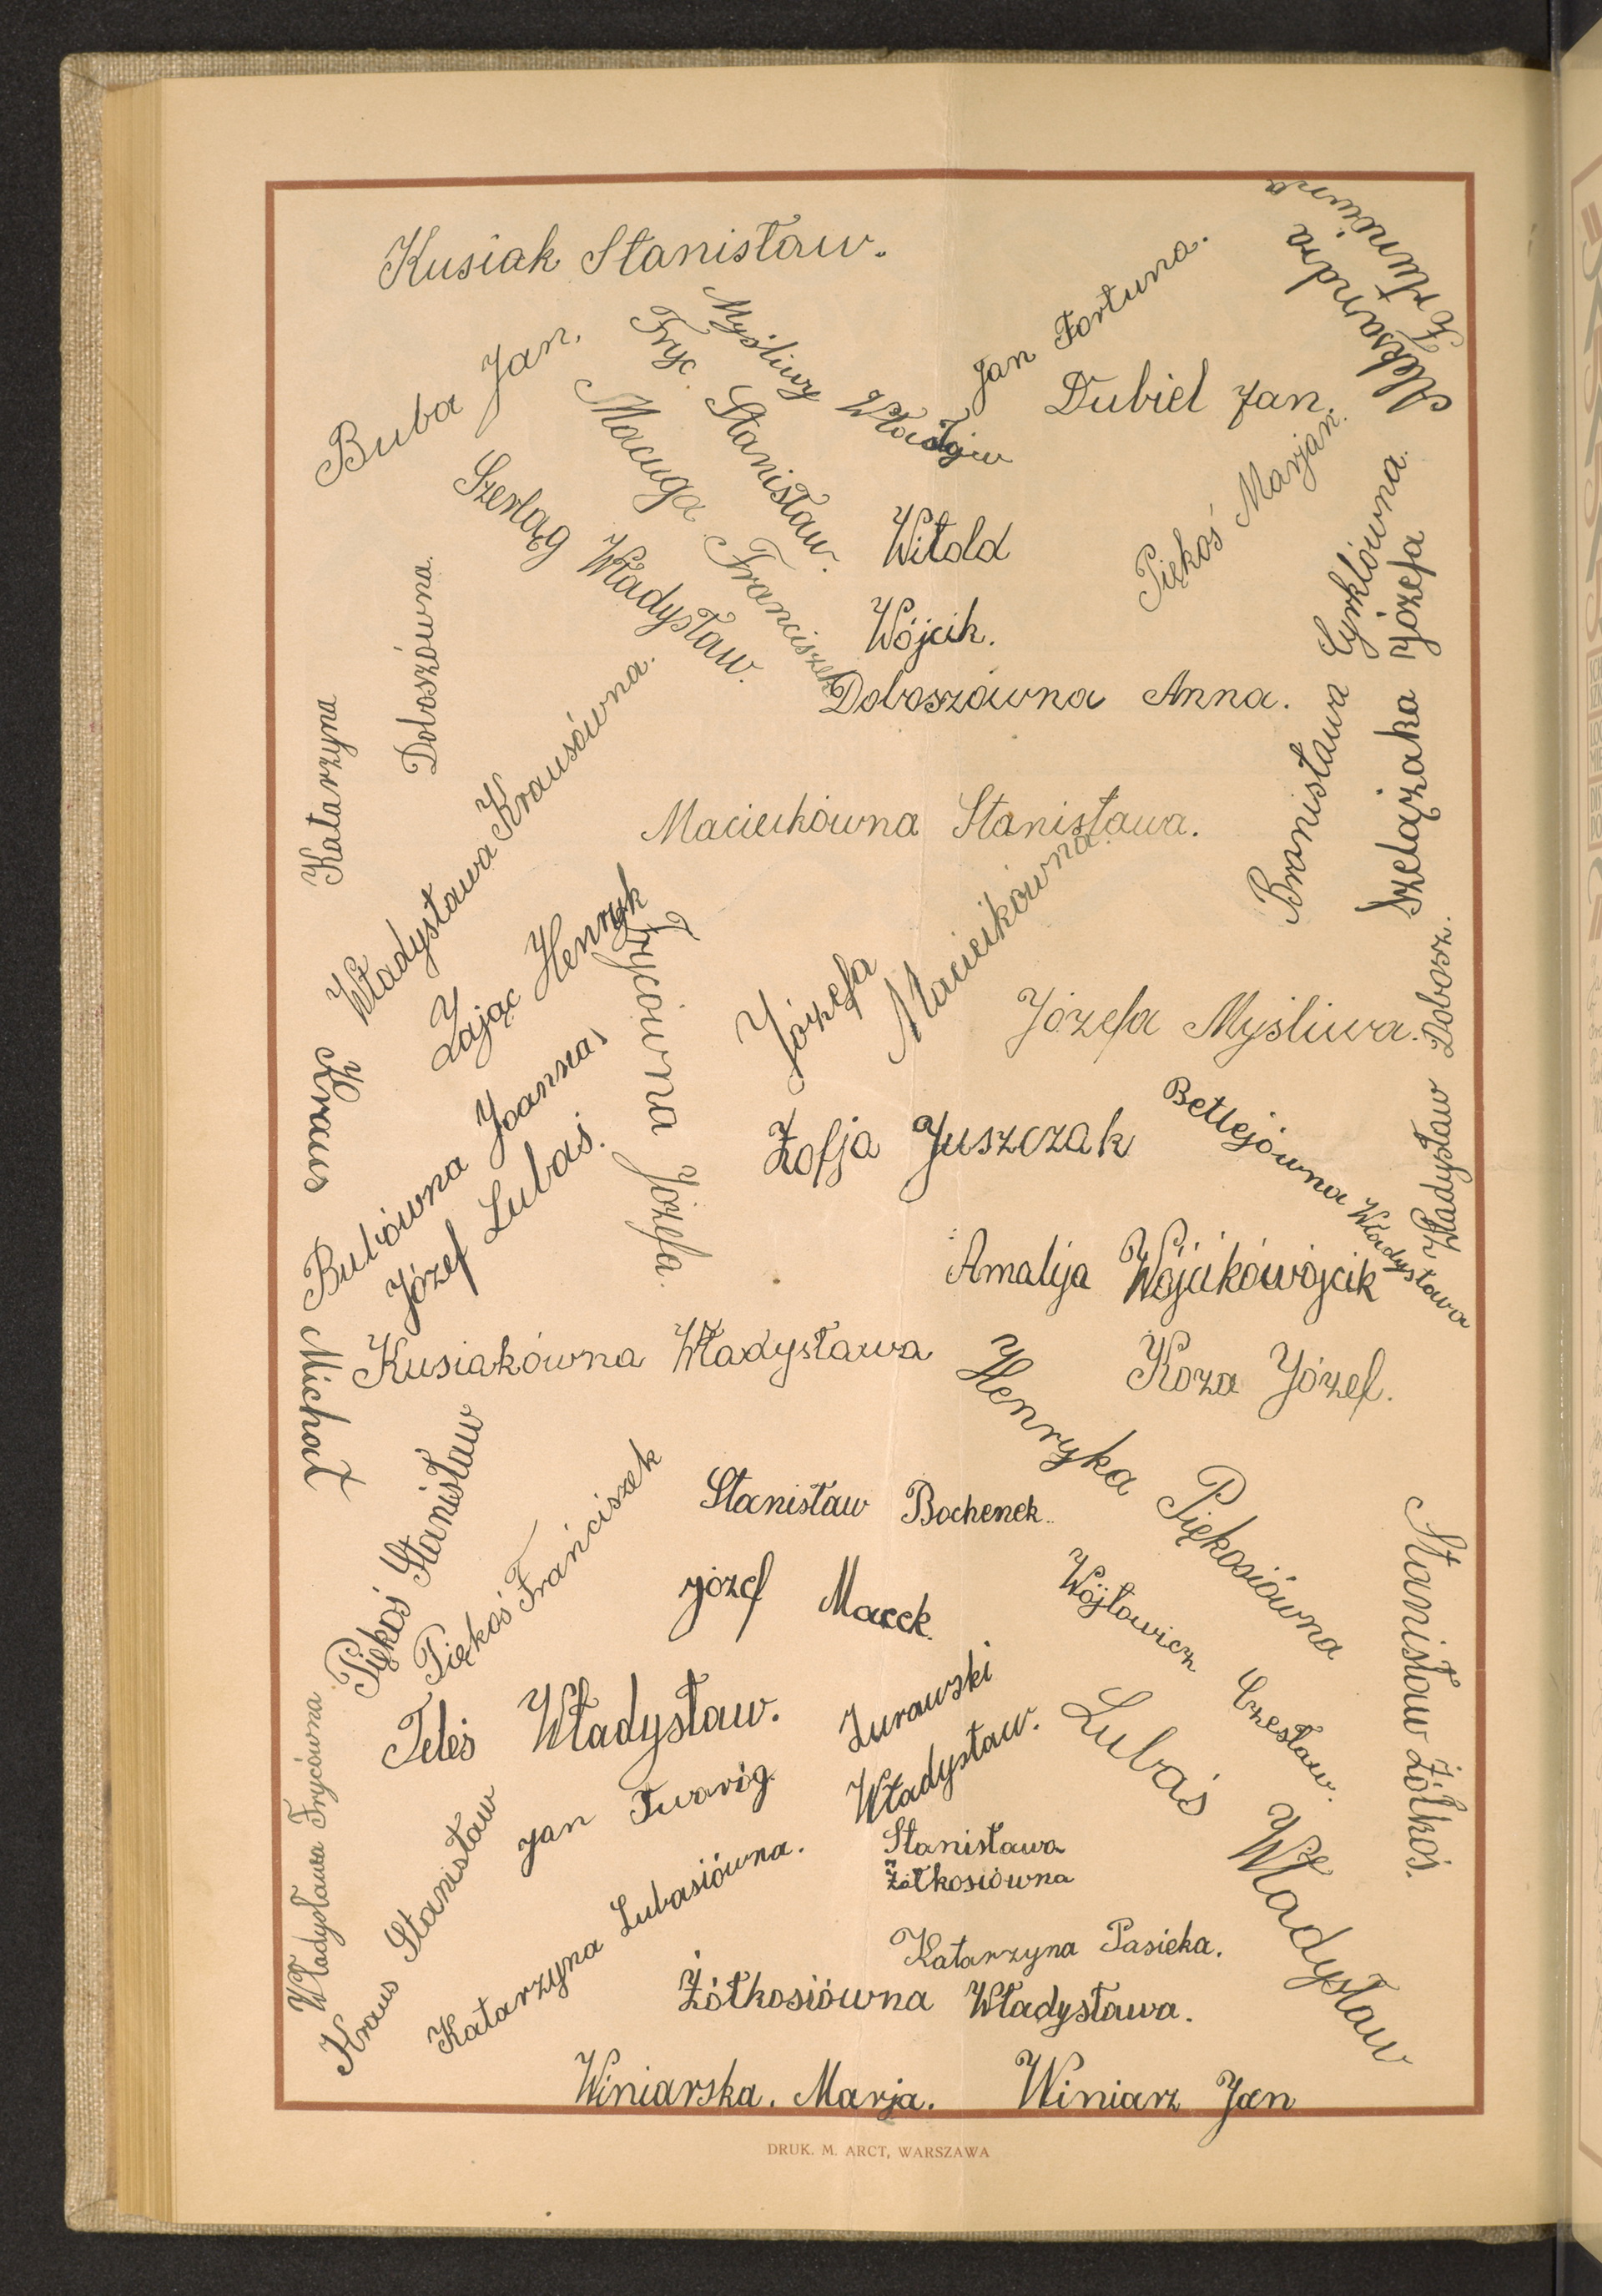 Kusiak Stanisław.
Myśliwy Władysław
Fryc Stanisław.
Jan Fortuna.
Aleksandra
Buba Jan.
Macuga Franciszek
Dubiel Jan.
Szerląg Władysław.
Piękoś Marjan.
Witold
Wójcik.
Bronisława Cyrklówna.
Szelążaka Józefa
Katarzyna
Doboszówna.
Doboszówna Anna.
Władysława Krausówna.
Maciekówna Stanisława.
Zając Henryk
Frycówna Józefa.
Józefa
Maciejkówna.
Józefa Myśliwa.
Władysław Dobosz.
Kraus
Michał
Bubówna Joanna
Józef Lubaś.
Zofja Juszczak
Betlejówna Władysława
Amalija Wójcikówójcik
Kusiakówna Władysława
Koza Józef.
Henryka Piękosiówna
Piękoś Stanisław
Piękoś Franciszek
Stanisław Bochenek.
Józef Macek.
Wójtowicz Czesław.
Stanisław Żółkoś.
Teleś Władysław.
Żurawski
Władysław.
Lubaś Władysław
Władysława Frycówna
Jan Twaróg.
Kraus Stanisław
Katarzyna Lubasiówna.
Stanisława
Żółkosiówna
Katarzyna Pasieka.
Żółkosiówna Władysława.
Winiarska. Marja.
Winiarz Jan
DRUK. M. ARCT, WARSZAWA